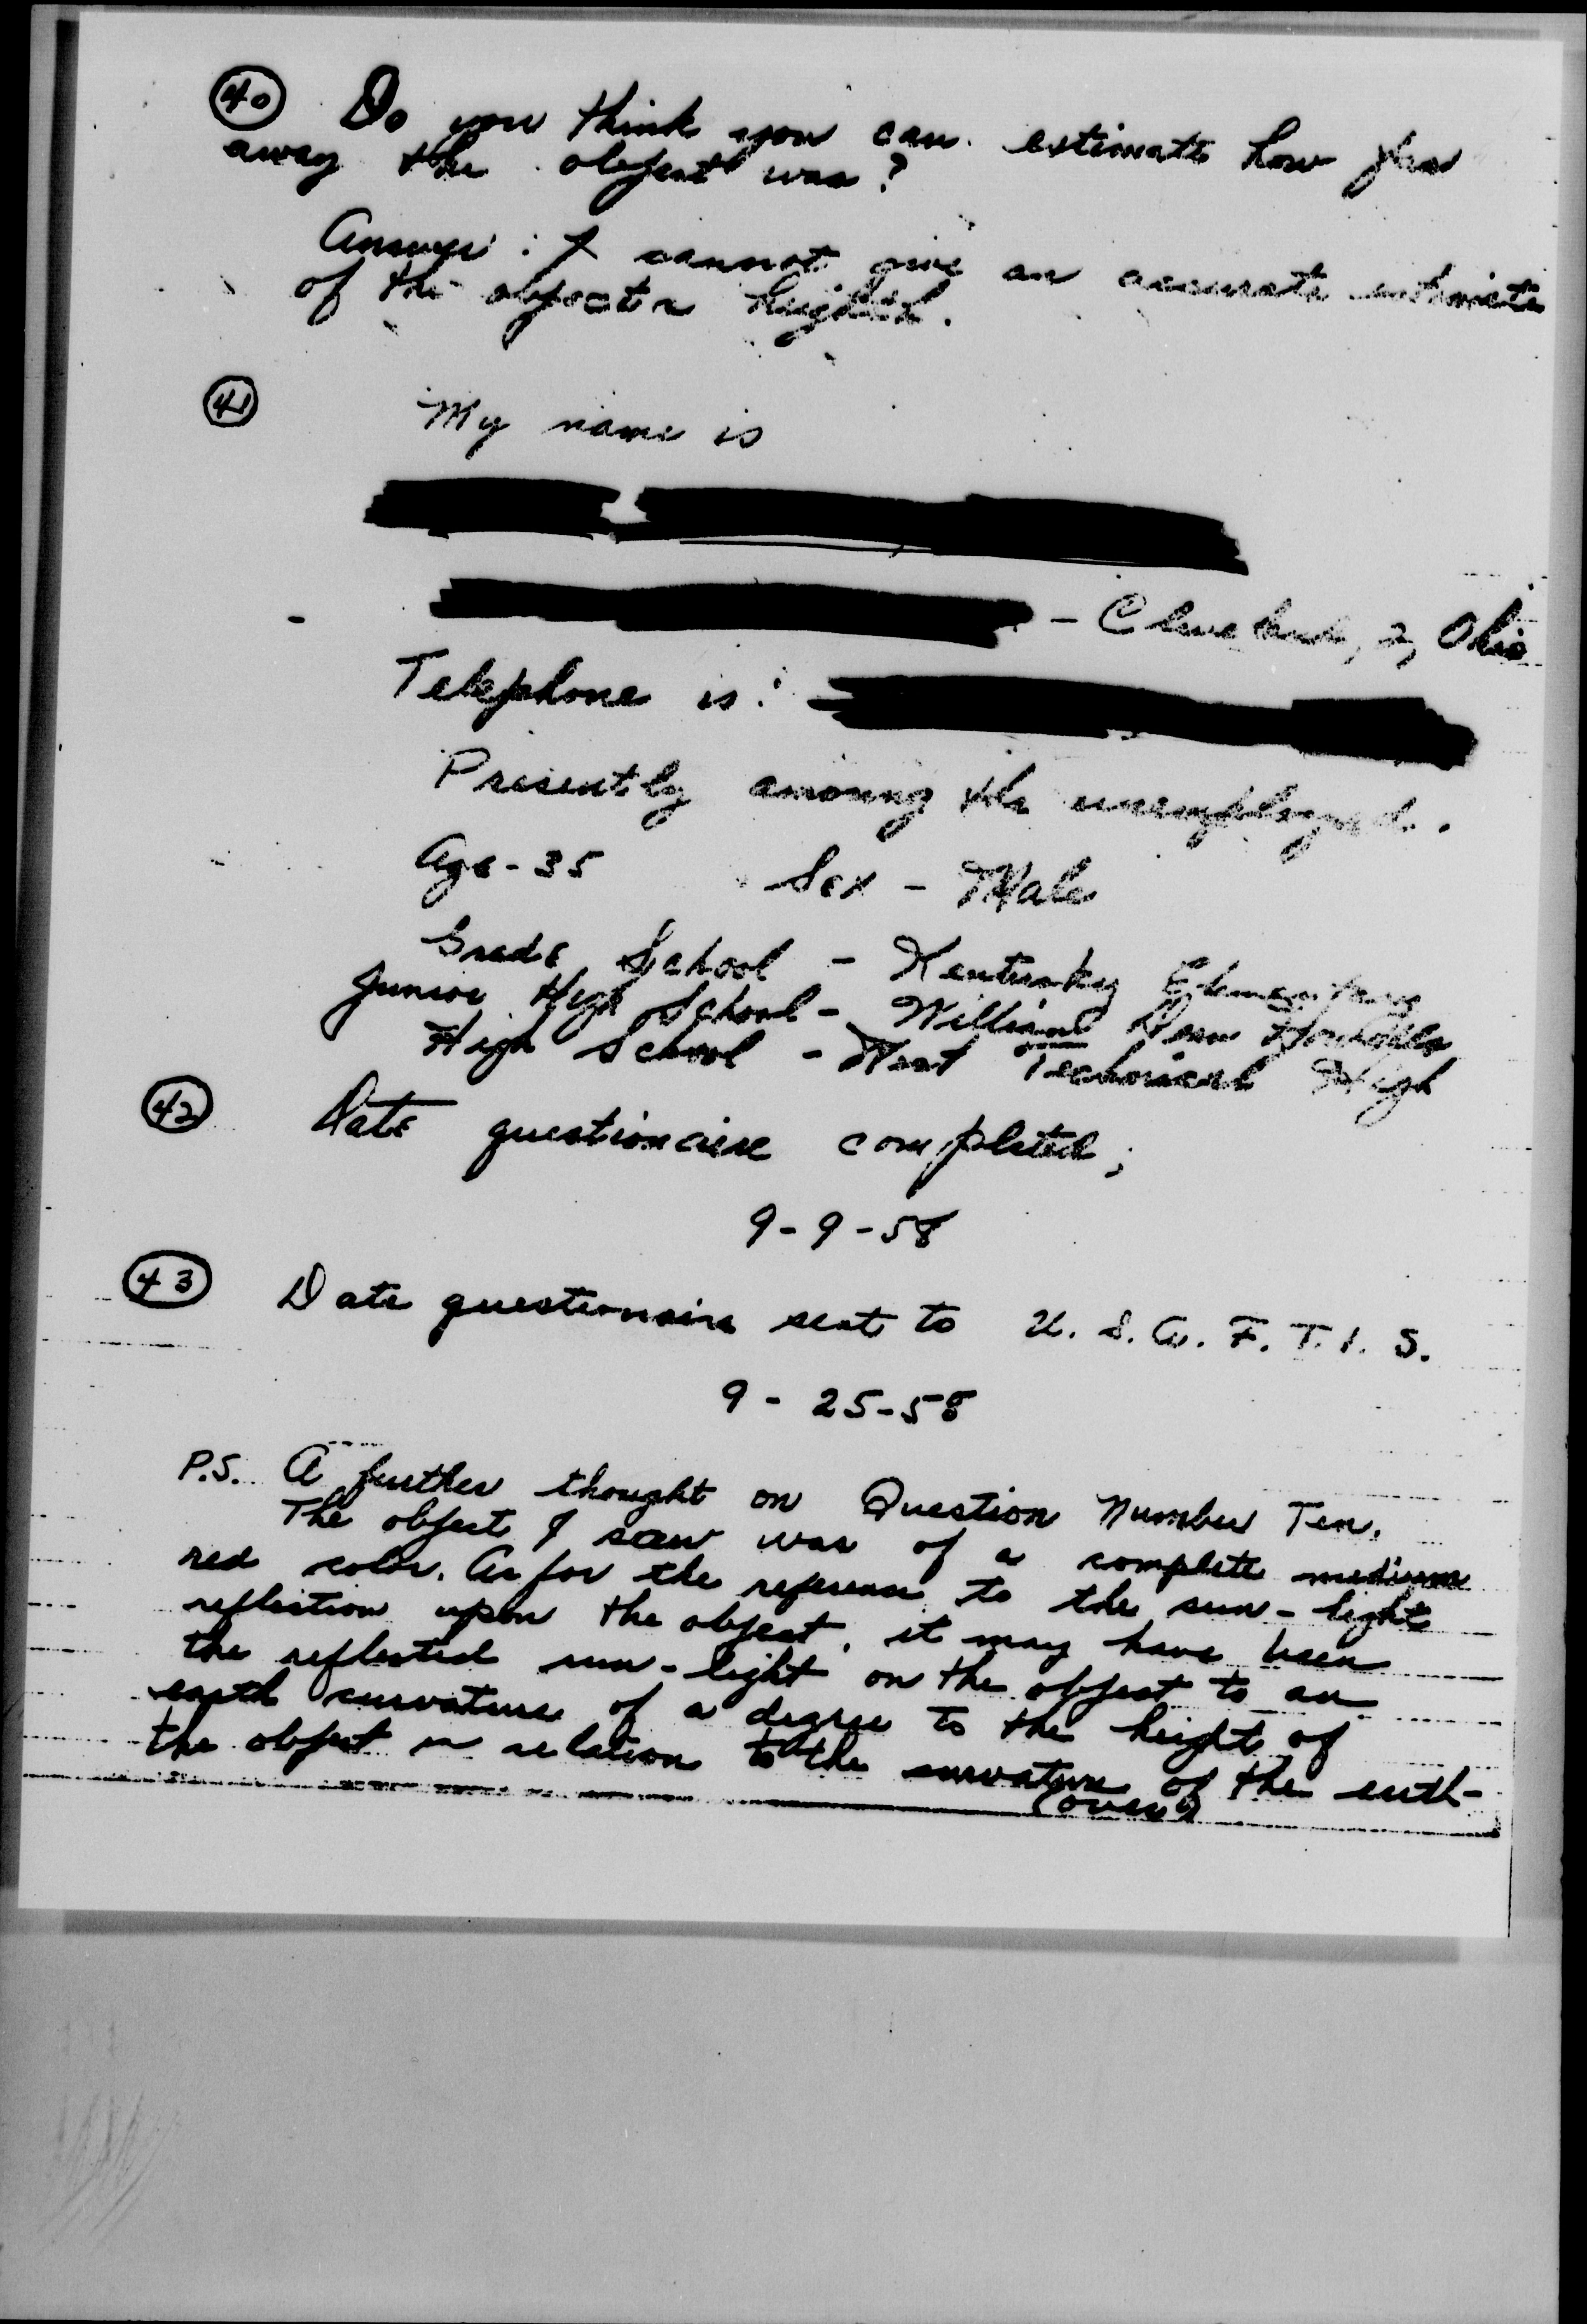 40 Do you think you can estimate how far
away the object was?
Answer: I cannot give an accurate estimate
of the objects height.
41 My name is
- Cleveland, 2, Ohio
Telephone is:
Presently among the unemployed.
Age - 35 Sex - Male
Grade School - Kentucky Elementary
Junior High School - William Dean Howells
High School - West Technical High
42 Date questionaire completed;
9-9-58
43 Date questionnaire sent to U. S. A. F. T. I. S.
9 - 25-58
P.S. A further thought on Question Number Ten.
The object I saw was of a complete medium
red color. As for the reference to the sun-light
reflection upon the object, it may have been
the reflected sun-light on the object to an
earth curvature of a degree to the height of
the object in relation to the curvature of the earth-
(over)